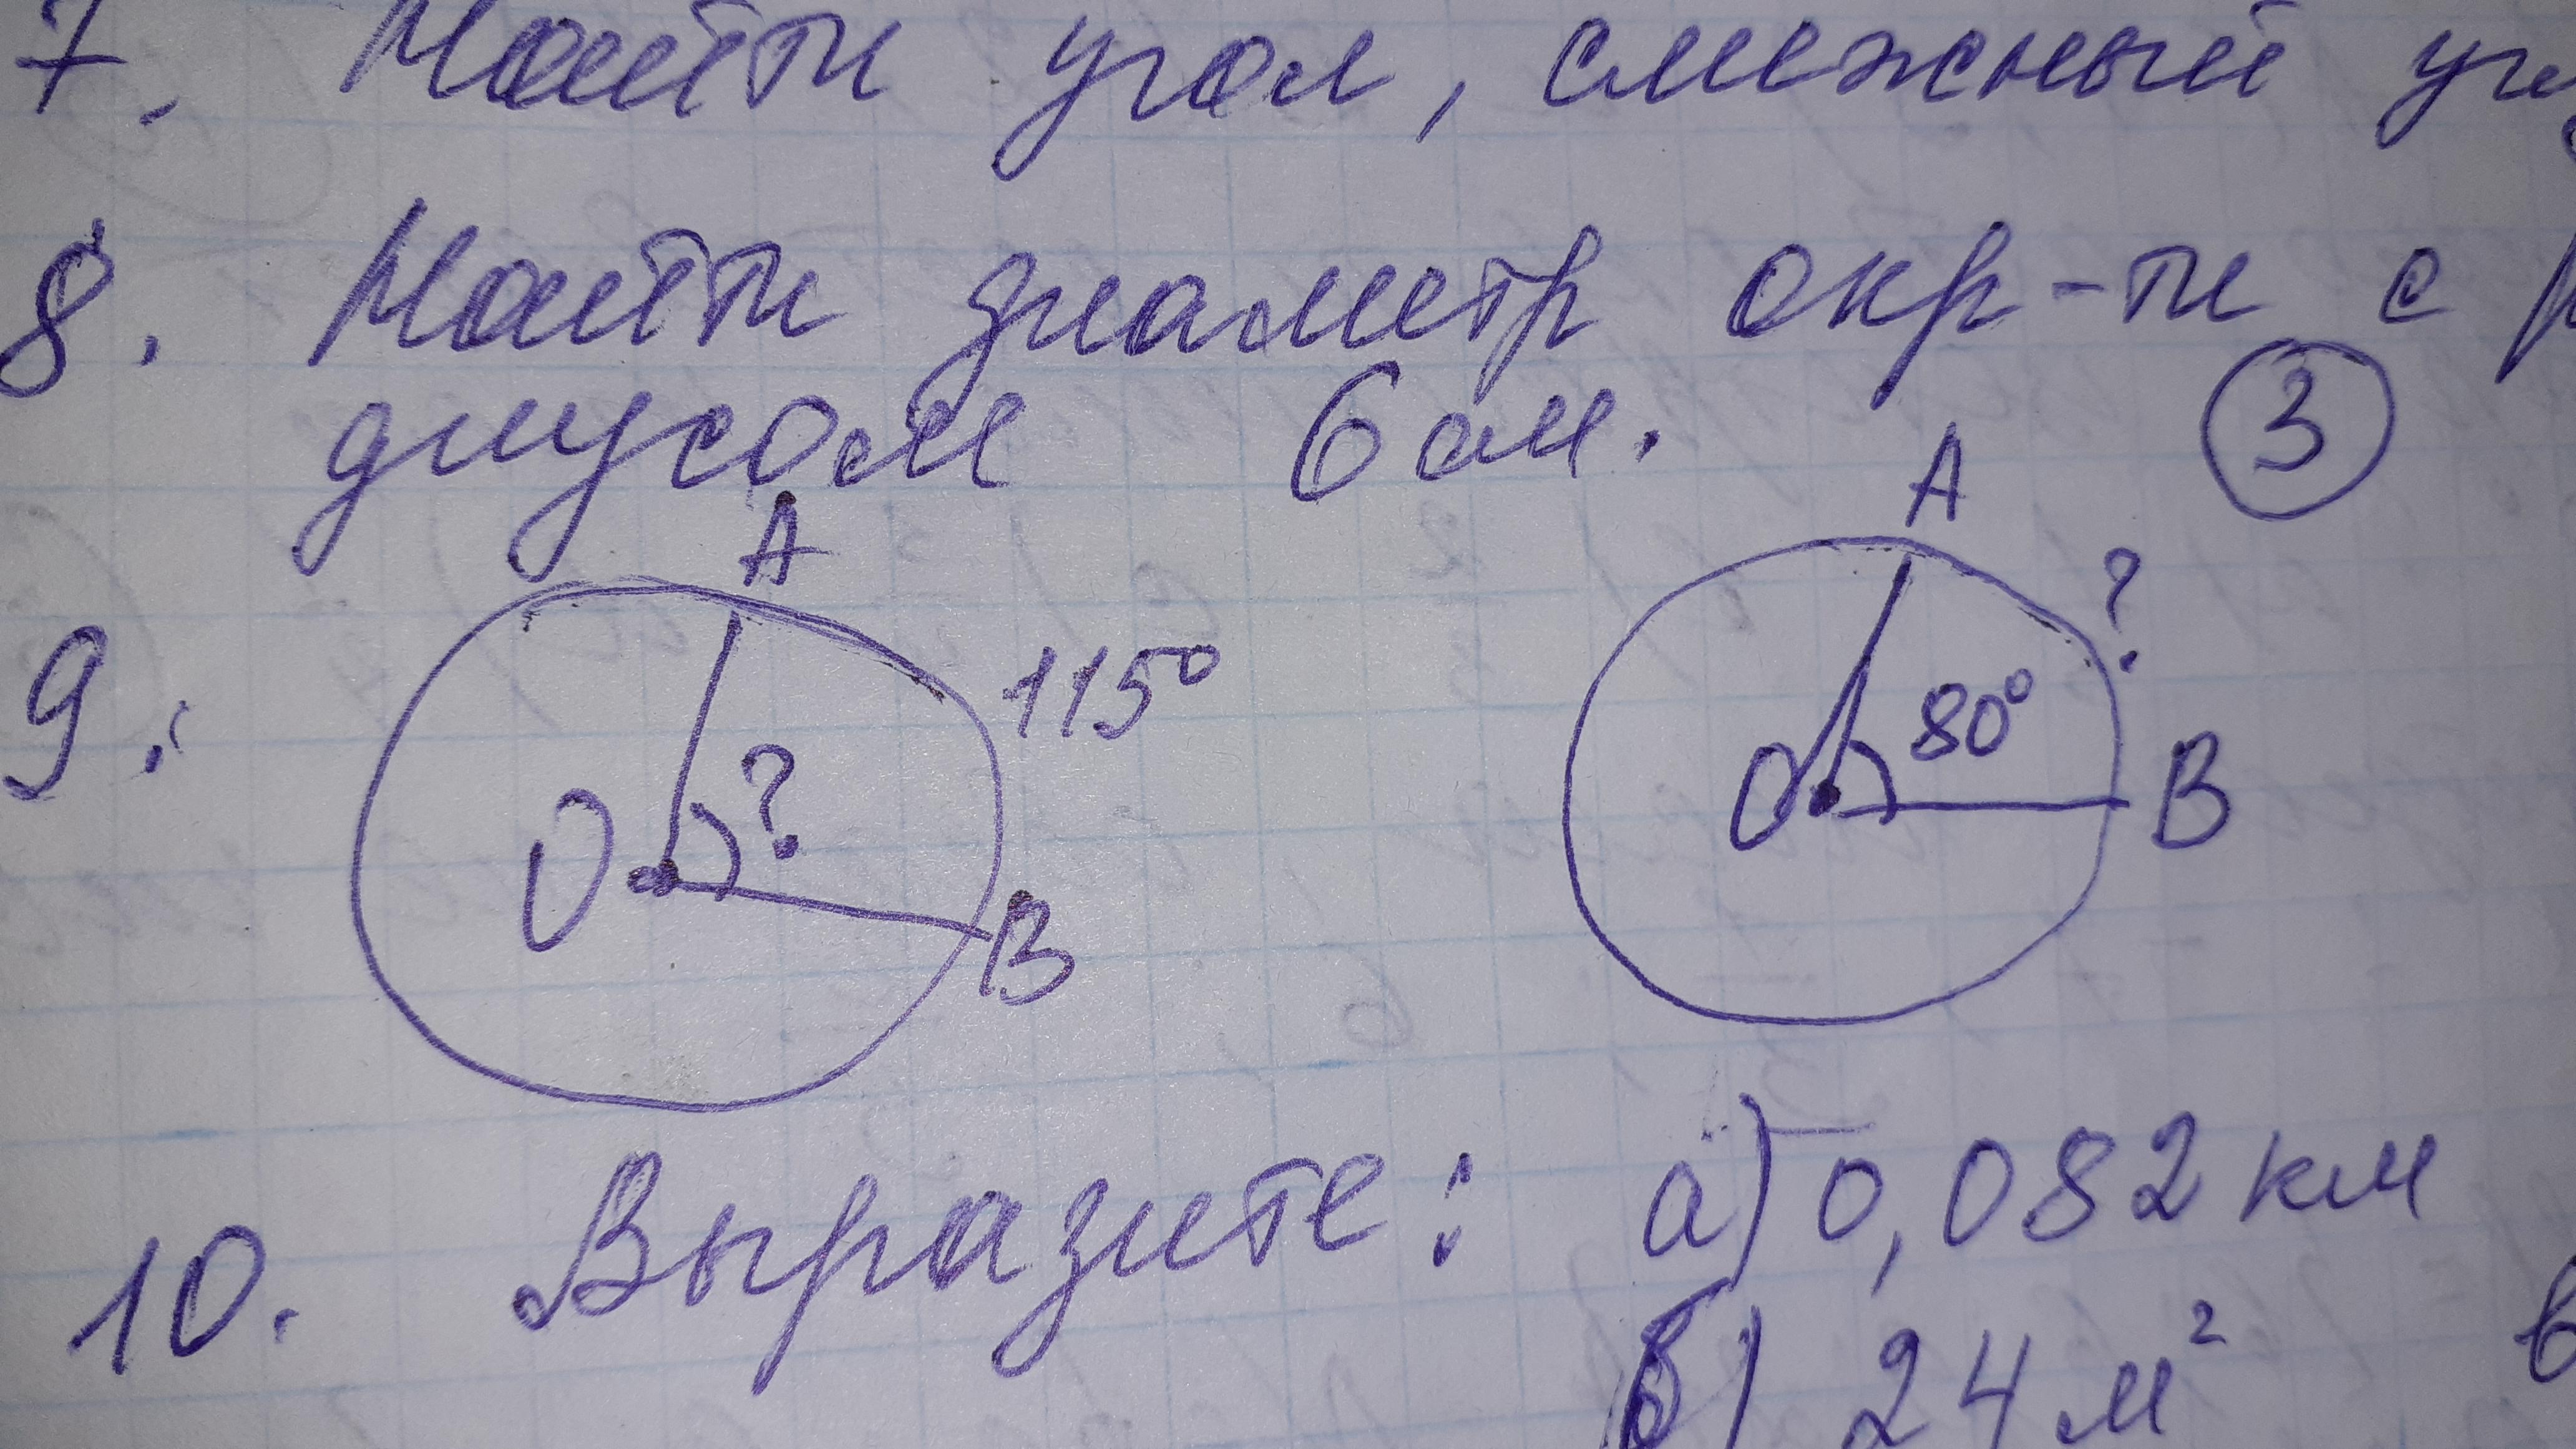 7. Найти угол, смежный
8. Найти диаметр окр-ти с
диусом 6 см.
3
9.
A
115°
?
O
B
A
?
80°
O
B
10. Выразите: а) 0,082 км
б) 24 м² в